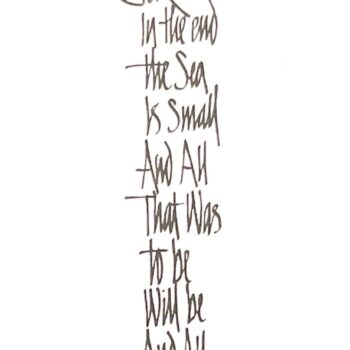 In the end
the Sea
Is Small
And All
That Was
to be
Will be
And All